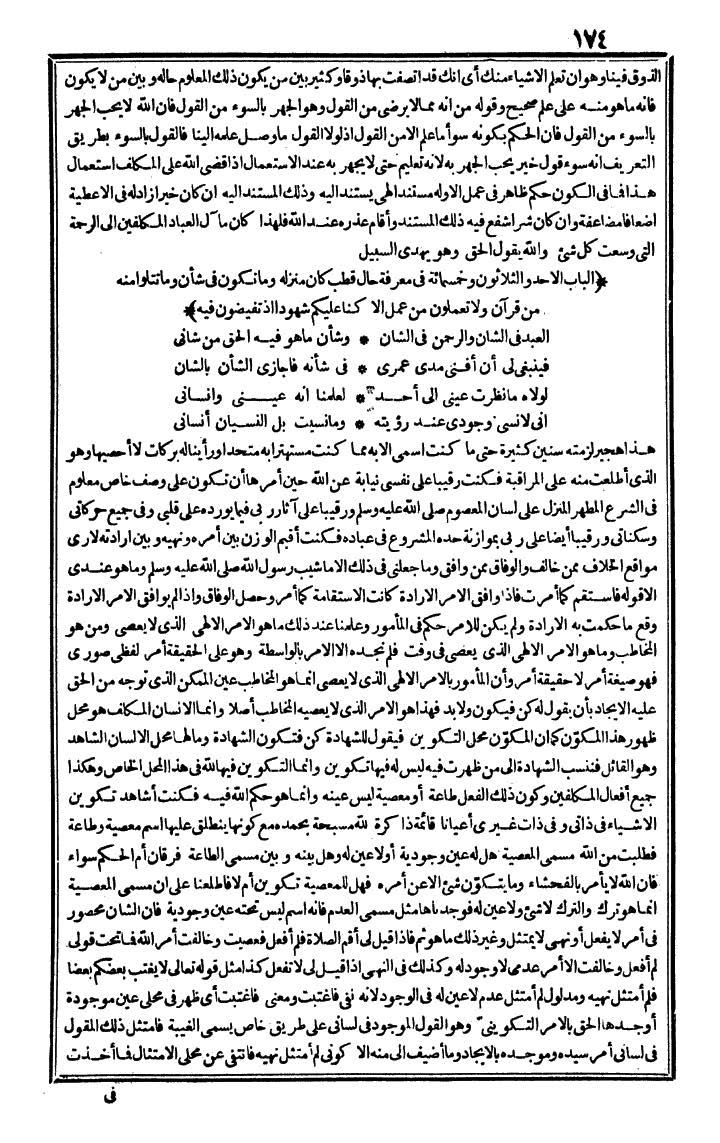 ١٧٤
الذوق فينا وهو ان تعلم الاشياء منك أى انك قد اتصفت بها ذوقا وكثير بين من يكون ذلك المعلوم حاله وبين من لا يكون
فانه ما هو منه على علم صحيح وقوله من انه مما لا يرضى من القول وهو الجهر بالسوء من القول فان الله لا يحب الجهر
بالسوء من القول فان الحكم بكونه سوأ ما علم الا من القول اذ لولا القول ما وصل علمه الينا فالقول بالسوء بطريق
التعريف انه سوء قول خير يحب الجهر به لانه تعليم حتى لا يجهر به عند الاستعمال اذا قضى الله على المكلف استعمال
هذا فما فى الكون حكم ظاهر فى عمل الا وله مستند الهى يستند اليه وذلك المستند اليه ان كان خيرا زاد له فى الاعطية
اضعافا مضاعفة وان كان شرا شفع فيه ذلك المستند وأقام عذره عند الله فلهذا كان مآل العباد المكلفين الى الرحمة
التى وسعت كل شئ والله يقول الحق وهو يهدى السبيل
﴿الباب الاحد والثلاثون وخمسمائة فى معرفة حال قطب كان منزله وما تكون فى شأن وما تتلوا منه
من قرآن ولا تعملون من عمل الا كنا عليكم شهودا اذ تفيضون فيه﴾
العبد فى الشان والرحمن فى الشان * وشأن ما هو فيه الحق من شانى
فينبغى لى أن أفنى مدى عمرى * فى شأنه فاجازى الشأن بالشان
لولاه ما نظرت عينى الى أحد * لعلمنا انه عينى وانسانى
انى لانسى وجودى عند رؤيته * وما نسيت بل النسيان أنسانى
هذا هجير لزمته سنين كثيرة حتى ما كنت اسمى الا به مما كنت مستهترا به متحدا ورأينا له بركات لا أحصيها وهو
الذى أطلعت منه على المراقبة فكنت رقيبا على نفسى نيابة عن الله حين أمرها أن تكون على وصف خاص معلوم
فى الشرع المطهر المنزل على لسان المعصوم صلى الله عليه وسلم ورقيبا على آثار ربى فيما يورده على قلبى وفى جميع حركاتى
وسكناتى ورقيبا أيضا على ربى بموازنة حده المشروع فى عباده فكنت أقيم الوزن بين أمره ونهيه وبين ارادته لارى
مواقع الخلاف ممن خالف والوفاق ممن وافق وما جعلنى فى ذلك الا ما شيب رسول الله صلى الله عليه وسلم وما هو عندى
الا قوله فاستقم كما أمرت فاذا وافق الامر الارادة كانت الاستقامة كما أمر وحصل الوفاق واذا لم يوافق الامر الارادة
وقع ما حكمت به الارادة ولم يكن للامر حكم فى المأمور وعلمنا عند ذلك ما هو الامر الالهى الذى لا يعصى ومن هو
المخاطب وما هو الامر الالهى الذى يعصى فى وقت فلم نجده الا الامر بالواسطة وهو على الحقيقة أمر لفظى صورى
فهو صيغة أمر لا حقيقة أمر وأن المأمور بالامر الالهى الذى لا يعصى انما هو المخاطب عين الممكن الذى توجه من الحق
عليه الايجاد بأن يقول له كن فيكون ولا بد فهذا هو الامر الذى لا يعصيه المخاطب أصلا وانما الانسان المكلف هو محل
ظهور هذا المكوّن كما ان المكوّن محل التكوين فيقول للشهادة كن فتكون الشهادة وما لها محل الا لسان الشاهد
وهو القائل فتنسب الشهادة الى من ظهرت فيه ليس له فيها تكوين وانما التكوين فيها لله فى هذا المحل الخاص وهكذا
جميع أفعال المكلفين وكون ذلك الفعل طاعة أو معصية ليس عينه وانما هو حكم الله فيه فكنت أشاهد تكوين
الاشياء فى ذاتى وفى ذات غيرى أعيانا قائمة ذاكرة لله مسبحة بحمده مع كونها ينطلق عليها اسم معصية وطاعة
فطلبت من الله مسمى المعصية هل له عين وجودية أو لا عين له وهل بينه وبين مسمى الطاعة فرقان أم الحكم سواء
فان الله لا يأمر بالفحشاء وما يتكوّن شئ الا عن أمره فهل للمعصية تكوين أم لا فاطلعنا على ان مسمى المعصية
انما هو ترك والترك لا شئ ولا عين له فوجدناها مثل مسمى العدم فانه اسم ليس تحته عين وجودية فان الشان محصور
فى أمر لا يفعل أو نهى لا يمتثل وغير ذلك ما هو ثم فاذا قيل لى أقم الصلاة فلم أفعل فعصيت وخالفت أمر الله فما تحت قولى
لم أفعل وخالفت الا أمر عدمى لا وجود له وكذلك فى النهى اذا قيل لى لا تفعل كذا مثل قوله تعالى لا يغتب بعضكم بعضا
فلم أمتثل نهيه ومدلول لم أمتثل عدم لا عين له فى الوجود لانه نفى فاغتبت ومعنى فاغتبت أى ظهر فى محلى عين موجودة
أوجدها الحق بالامر التكوينى وهو القول الموجود فى لسانى على طريق خاص يسمى الغيبة فامتثل ذلك المقول
فى لسانى أمر سيده وموجده بالايجاد وما أضيف الى منه الا كونى لم أمتثل نهيه فانتفى عن محلى الامتثال فما أخذت
فى